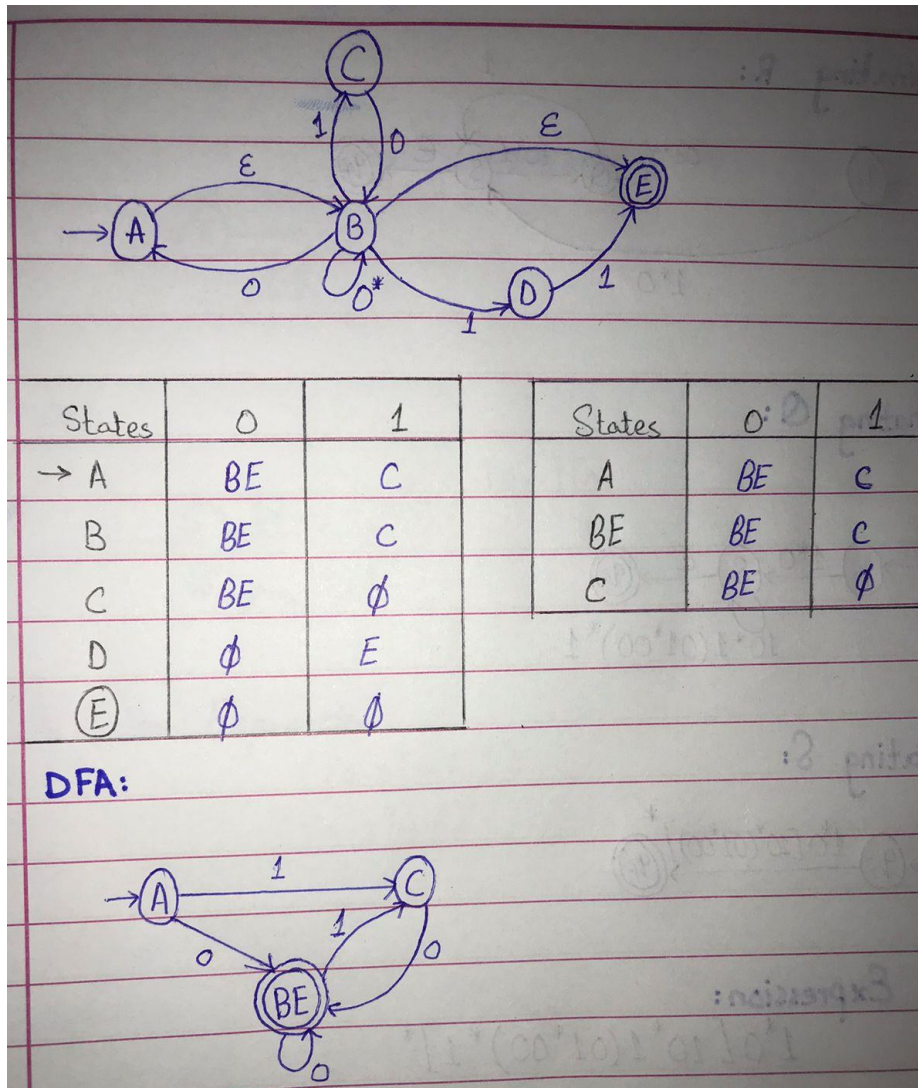 C
1 0
ε ε
A B E
0 0* D 1
1
States 0 1
→ A BE C
B BE C
C BE ∅
D ∅ E
E ∅ ∅
States 0 1
A BE C
BE BE C
C BE ∅
DFA:
A 1 C
0 1 0
BE
0